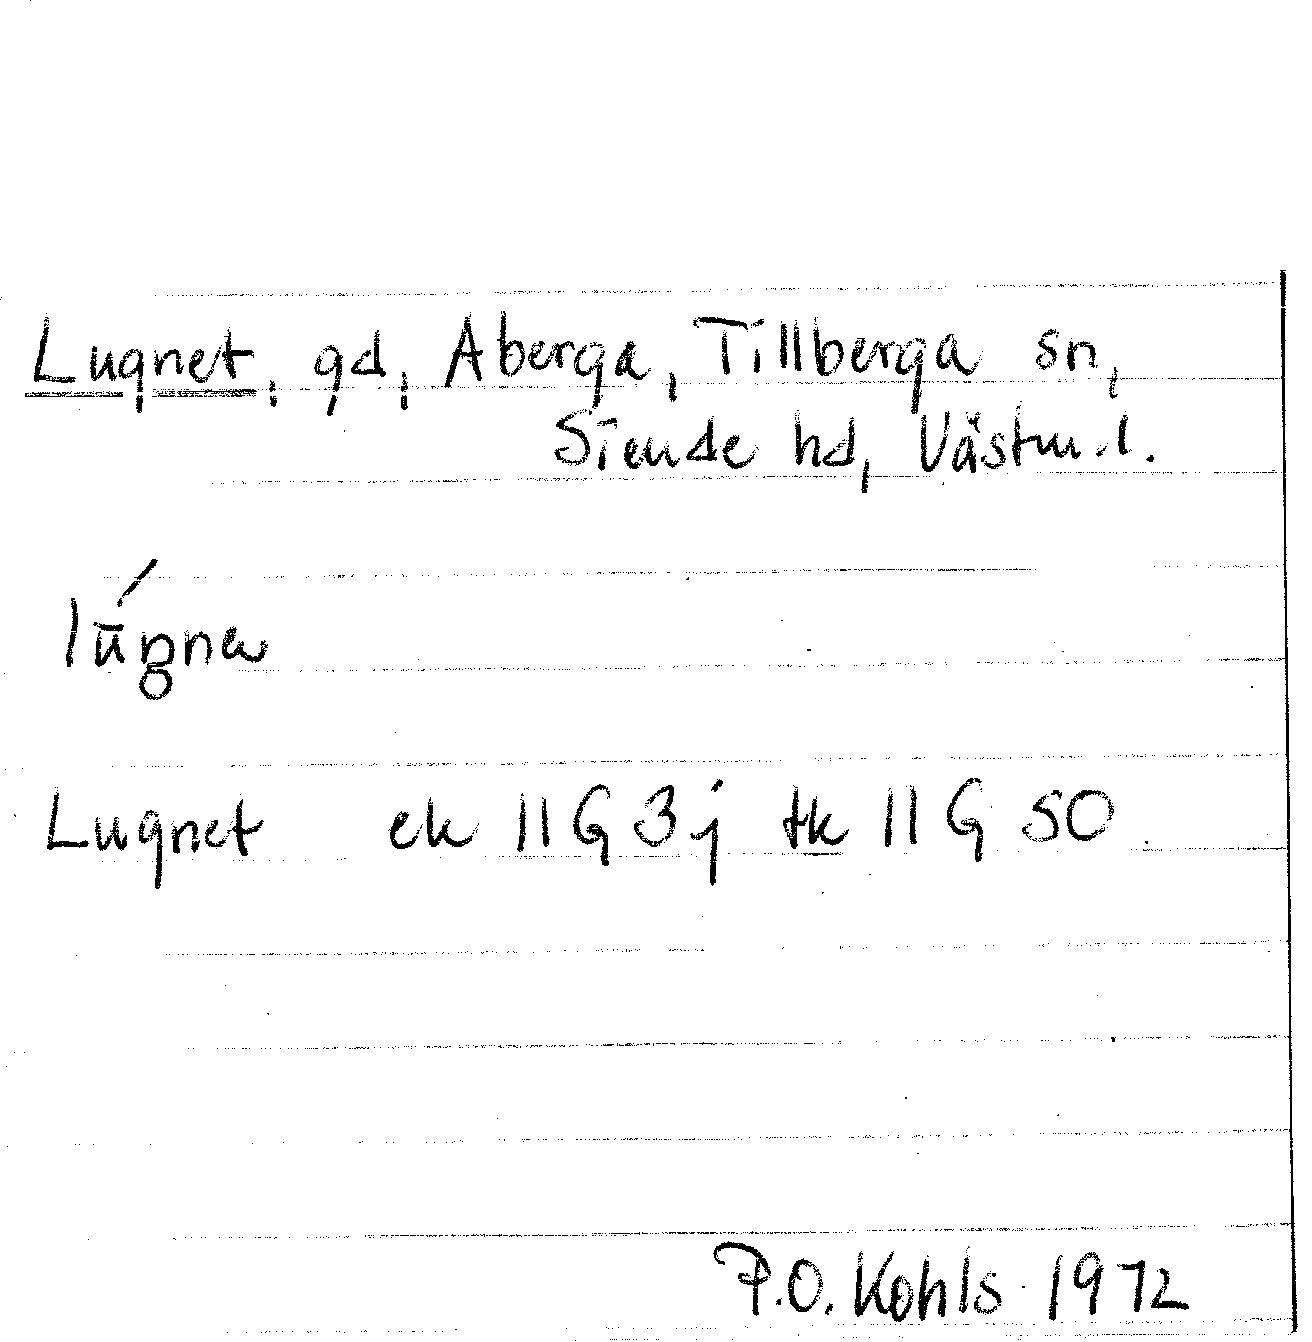 Lugnet, gd, Aberga, Tillberga sn,
Siende hd, Västm.l.
Lugnet ek 11 G 3 j tk 11 G SO
P.O. Kohls 1972